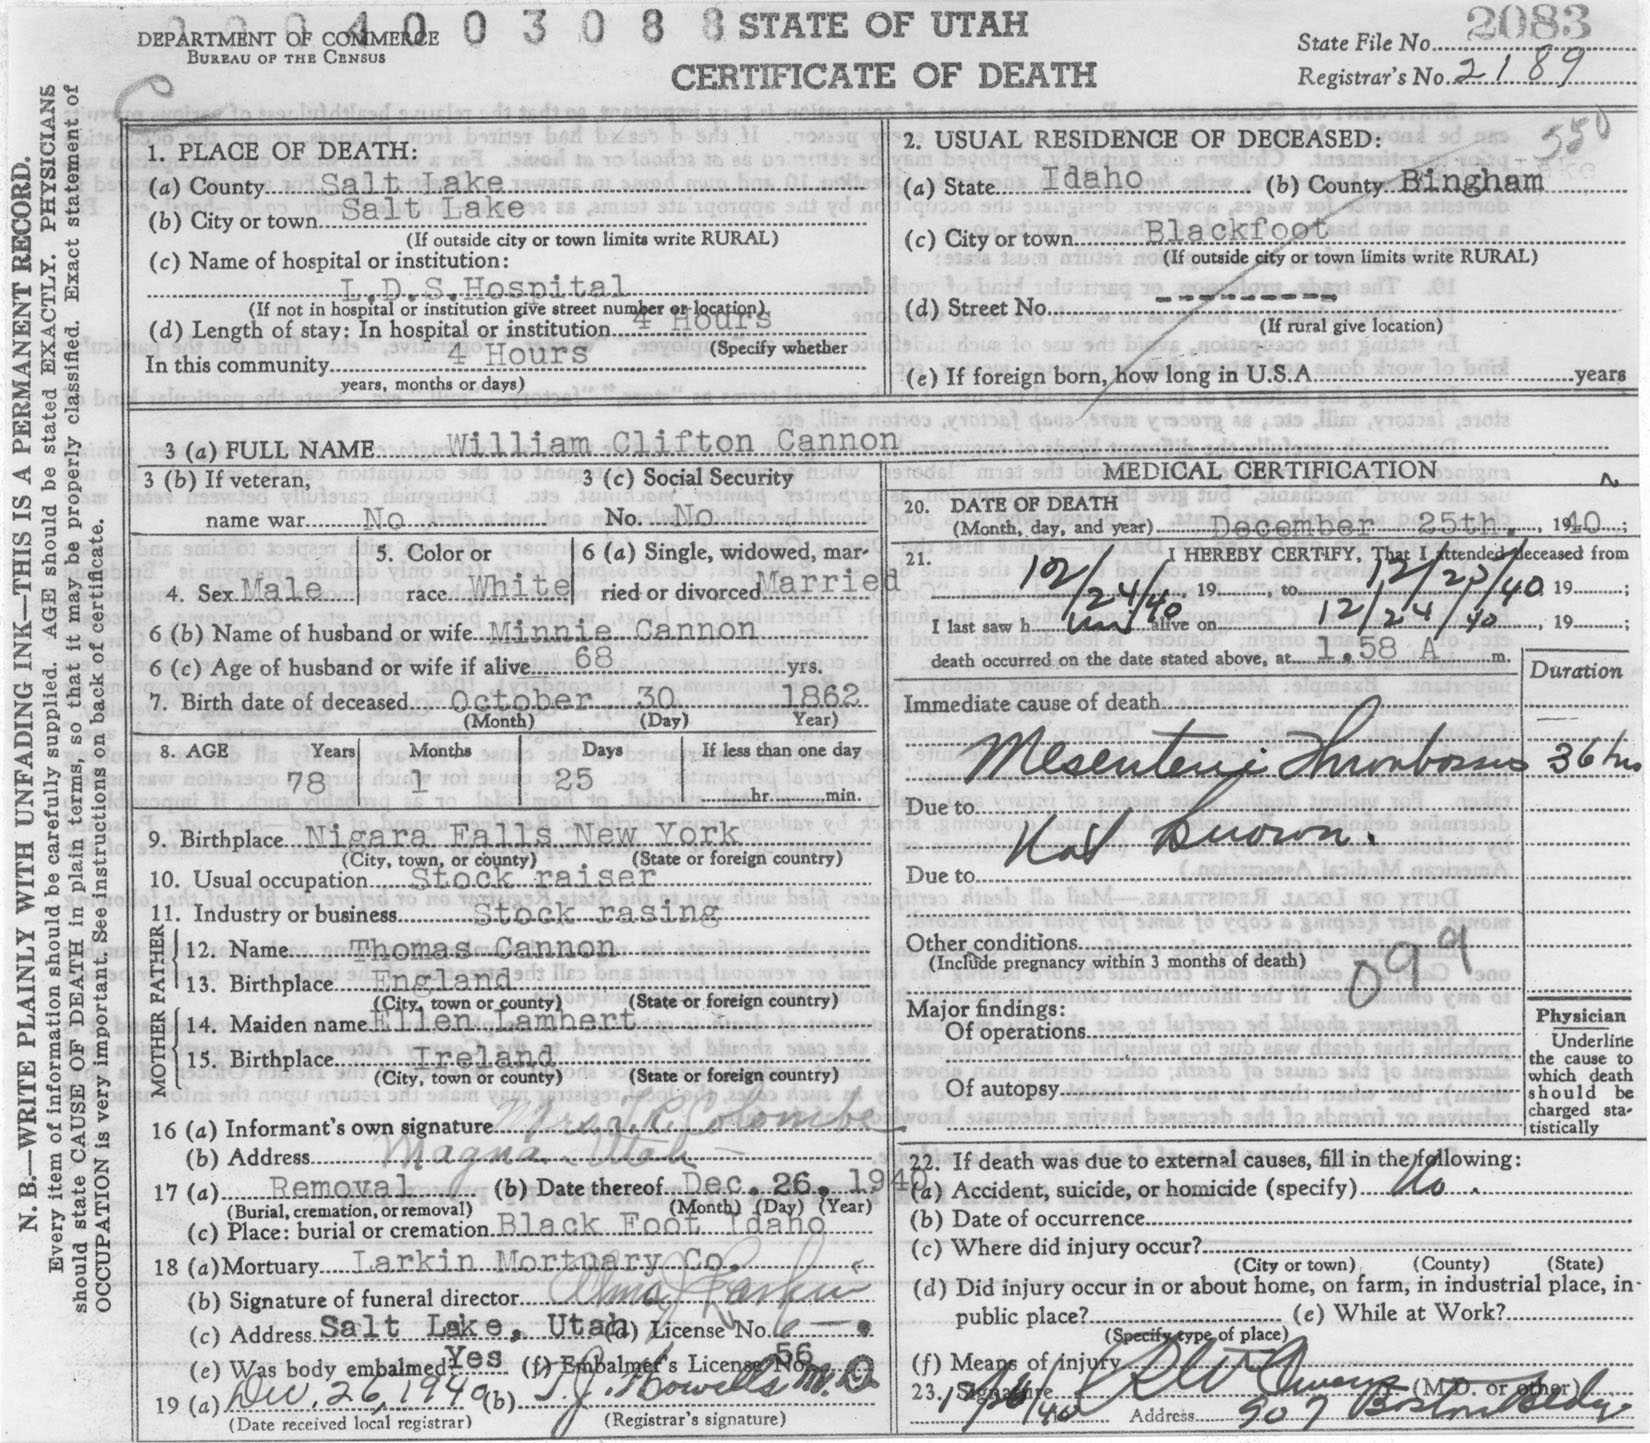 0004003088
STATE OF UTAH
CERTIFICATE OF DEATH
DEPARTMENT OF COMMERCE
BUREAU OF THE CENSUS
State File No. 2083
Registrar's No. 2189
N. B.—WRITE PLAINLY WITH UNFADING INK—THIS IS A PERMANENT RECORD.
Every item of information should be carefully supplied. AGE should be stated EXACTLY. PHYSICIANS
should state CAUSE OF DEATH in plain terms, so that it may be properly classified. Exact statement of
OCCUPATION is very important. See instructions on back of certificate.
1. PLACE OF DEATH:
(a) County Salt Lake
(b) City or town Salt Lake
(If outside city or town limits write RURAL)
(c) Name of hospital or institution:
L.D.S.Hospital
(If not in hospital or institution give street number or location)
(d) Length of stay: In hospital or institution 4 Hours
(Specify whether
In this community 4 Hours
years, months or days)
2. USUAL RESIDENCE OF DECEASED:
550
(a) State Idaho (b) County Bingham
(c) City or town Blackfoot
(If outside city or town limits write RURAL)
(d) Street No. ---------
(If rural give location)
(e) If foreign born, how long in U.S.A. years
3 (a) FULL NAME William Clifton Cannon
3 (b) If veteran,
name war No
3 (c) Social Security
No. No
4. Sex Male
5. Color or
race White
6 (a) Single, widowed, mar-
ried or divorced Married
6 (b) Name of husband or wife Minnie Cannon
6 (c) Age of husband or wife if alive 68 yrs.
7. Birth date of deceased October 30 1862
(Month) (Day) Year)
8. AGE Years Months Days If less than one day
78 1 25 hr. min.
9. Birthplace Nigara Falls New York
(City, town, or county) (State or foreign country)
10. Usual occupation Stock raiser
11. Industry or business Stock rasing
FATHER
12. Name Thomas Cannon
13. Birthplace England
(City, town or county) (State or foreign country)
MOTHER
14. Maiden name Ellen Lambert
15. Birthplace Ireland
(City, town or county) (State or foreign country)
16 (a) Informant's own signature Mrs. Colombe
(b) Address Magna Utah
17 (a) Removal (b) Date thereof Dec. 26, 1940
(Burial, cremation, or removal) (Month) (Day) (Year)
(c) Place: burial or cremation Black Foot Idaho
18 (a) Mortuary Larkin Mortuary Co.
(b) Signature of funeral director Alma J Larkin
(c) Address Salt Lake, Utah (d) License No. 6
(e) Was body embalmed? Yes (f) Embalmer's License No. 56
19 (a) Dec. 26, 1940 (b) T. J. Howells M.D.
(Date received local registrar) (Registrar's signature)
MEDICAL CERTIFICATION
20. DATE OF DEATH
(Month, day, and year) December 25th. 1940;
21. I HEREBY CERTIFY, That I attended deceased from
12/24/40, 19 , to 12/25/40 19 ;
I last saw h im alive on 12/24/40, 19 ;
death occurred on the date stated above, at 1.58 A m.
Duration
Immediate cause of death
Mesenteric Thrombosis 36 hrs
Due to
Not Known.
Due to
Other conditions
(Include pregnancy within 3 months of death)
099
Major findings:
Of operations
Of autopsy
Physician
Underline
the cause to
which death
should be
charged sta-
tistically
22. If death was due to external causes, fill in the following:
(a) Accident, suicide, or homicide (specify) No.
(b) Date of occurrence
(c) Where did injury occur?
(City or town) (County) (State)
(d) Did injury occur in or about home, on farm, in industrial place, in
public place? (e) While at Work?
(Specify type of place)
(f) Means of injury
23. Signature Owens (M.D. or other)
Address 907 Boston Bldg